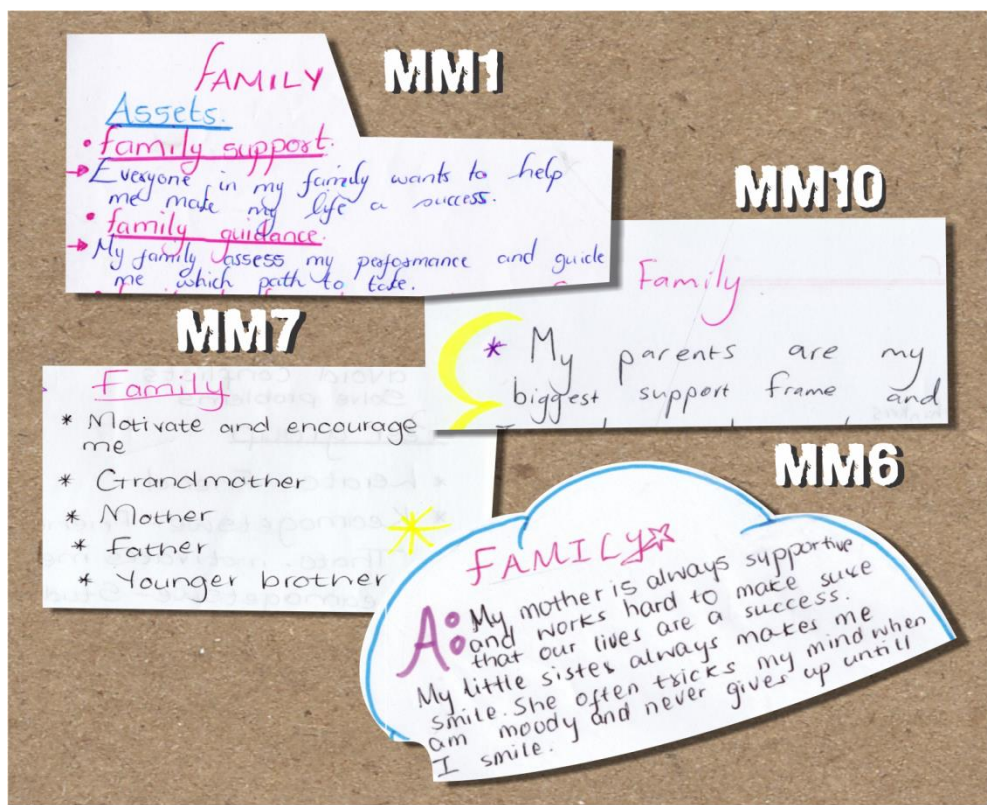 MM1
FAMILY
Assets.
• family support.
→ Everyone in my family wants to help
me make my life a success.
• family guidance.
→ My family assess my performance and guide
me which path to take.
MM10
Family
* My parents are my
biggest support frame and
MM7
Family
* Motivate and encourage
me
* Grandmother
* Mother
* Father
* Younger brother
MM6
FAMILY
A: My mother is always supportive
and works hard to make sure
that our lives are a success.
My little sister always makes me
smile. She often tricks my mind when
am moody and never gives up untill
I smile.